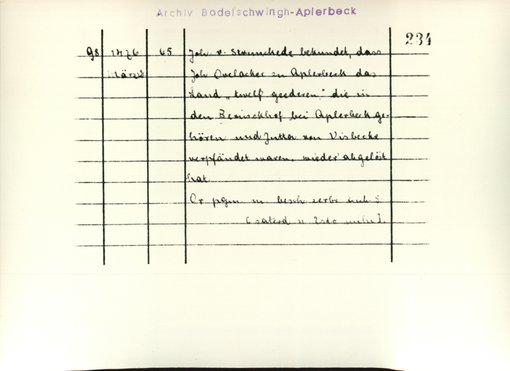 Archiv Bodelschwingh-Aplerbeck
234
98 1476 65 Joh v. Strunchede bekundet, dass
März Joh Ovelacker zu Aplerbeck das
Land "twelf geederen" die in
den Beruschhof bei Aplerbeck ge-
hören und Jutta von Visbecke
verpfändet waren, wieder abgelöst
hat.
Or pgm m. besch